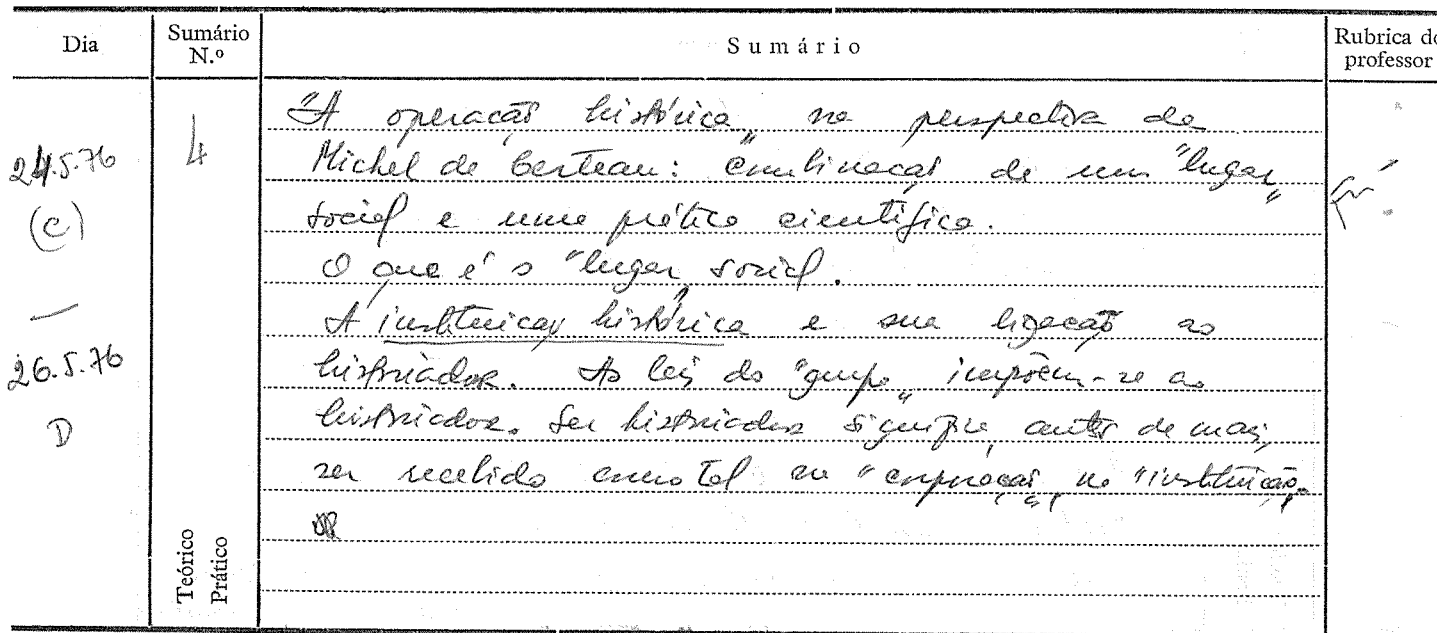 Dia
Sumário N.º
Sumário
Rubrica do professor
24.5.76
(C)
—
26.5.76
D
4
"A operação histórica" na perspectiva de
Michel de Certeau: combinação de um "lugar"
social e uma prática científica.
O que é o "lugar" social.
A instituição histórica e sua ligação ao
historiador. As leis do "grupo" impõem-se ao
historiador. Ser historiador significa, antes de mais,
ser recebido como tal na "corporação", na "instituição".
Teórico
Prático